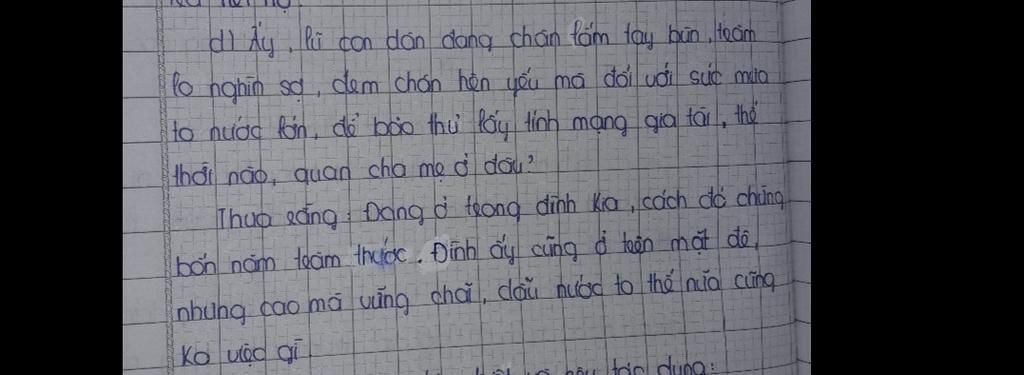 d) Ấy, lũ con dân đang chân lấm tay bùn, trăm
lo nghìn sợ, đem thân hèn yếu mà đối với sức mưa
to nước lớn, để bảo thủ lấy tính mạng gia tài, thế
thời nào, quan cha mẹ ở đâu?
Thưa rằng: Đang ở trong đình kia, cách đó chừng
bốn năm trăm thước. Đình ấy cũng ở trên mặt đê,
nhưng cao mà vững chãi, dẫu nước to thế nữa cũng
ko việc gì
dụng: